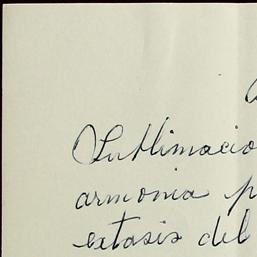 Sublimacio
armonia p
extasis del